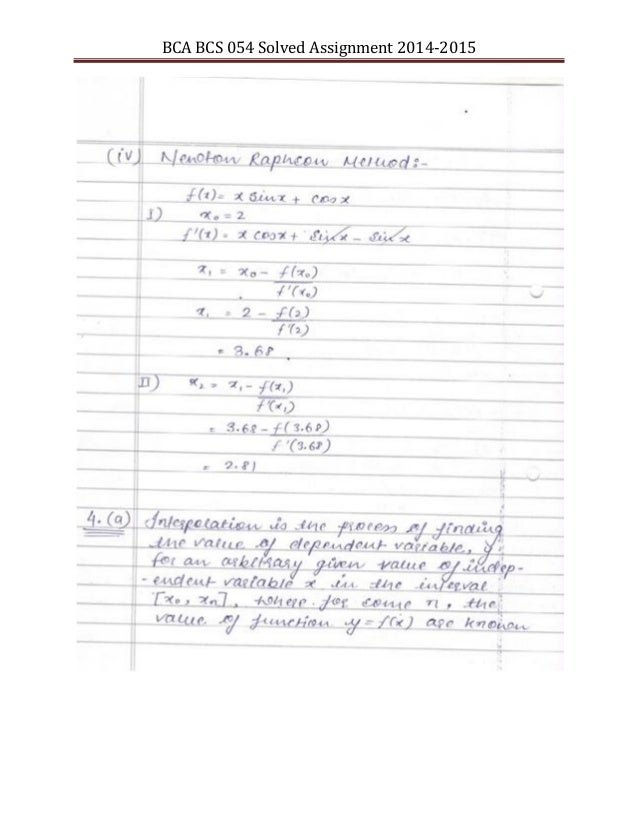 BCA BCS 054 Solved Assignment 2014-2015
(iv) Newton Raphson Method:-
f(x) = x sinx + cosx
I) x₀ = 2
f'(x) = x cosx + sinx - sinx
x₁ = x₀ - f(x₀)
f'(x₀)
x₁ = 2 - f(2)
f'(2)
= 3.68
II) x₂ = x₁ - f(x₁)
f'(x₁)
= 3.68 - f(3.68)
f'(3.68)
= 2.81
4.(a) Interpolation is the process of finding
the value of dependent variable, y
for an arbitrary given value of indep-
-endent variable x in the interval
[x₀, xn], where for some n, the
value of function y = f(x) are known